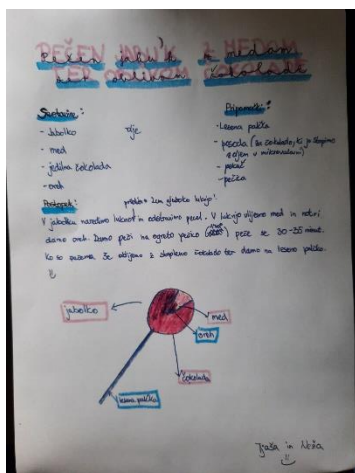 PEČEN JABUK Z MEDOM
TER OBLIKOM ČOKOLADE
Sestavine:
- Jabolko olje
- med
- jedilna čokolada
- oreh
Pripomočki:
- Lesena palčka
- posoda (za čokolado, ki jo stopimo
z oljem v mikrovalovni)
- pekač
- pečica
Postopek:
V jabolku naredimo luknjo in odstranimo pecelj. V luknjo vlijemo med in notri
damo oreh. Damo peči na ogreto pečico peče se 30-35 minut.
Ko so pečena, še oblijemo z stopljeno čokolado ter damo na leseno palčko.
jabolko
med
oreh
čokolada
lesena palčka
in Neža